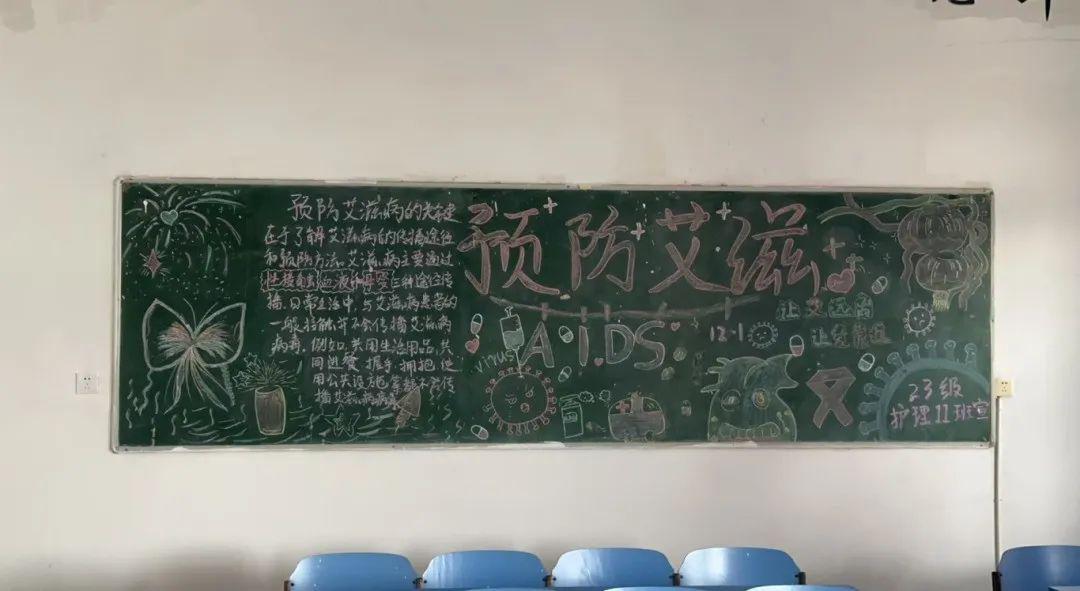 预防艾滋病的关键
在于了解艾滋病的传播途径
和预防方法。艾滋病主要通过
性接触、血液和母婴三种途径传
播。日常生活中,与艾滋病患者的
一般接触并不会传播艾滋病
病毒,例如,共用生活用品,共
同进餐、握手、拥抱、使
用公共设施等都不会传
播艾滋病病毒
预防艾滋
AIDS
virus
12·1
让艾远离
23级
护理11班宣